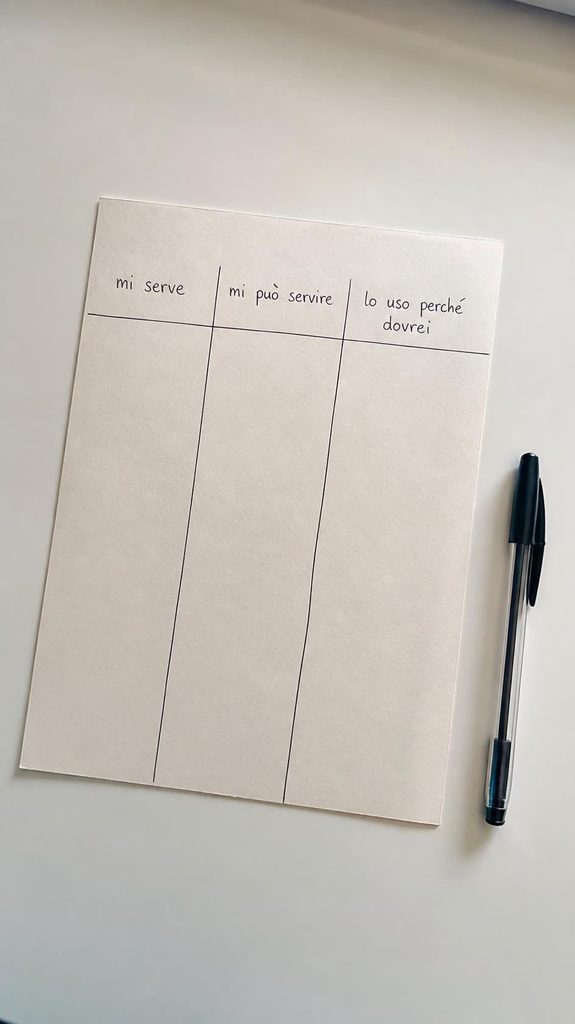 mi serve
mi può servire
lo uso perché
dovrei